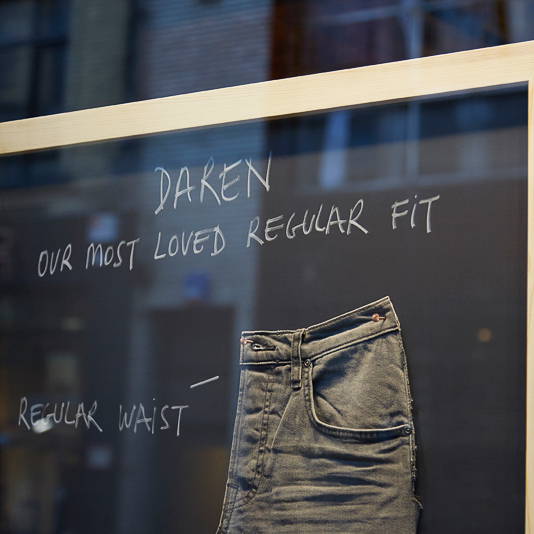 DAREN
OUR MOST LOVED REGULAR FiT
REGULAR WAiST